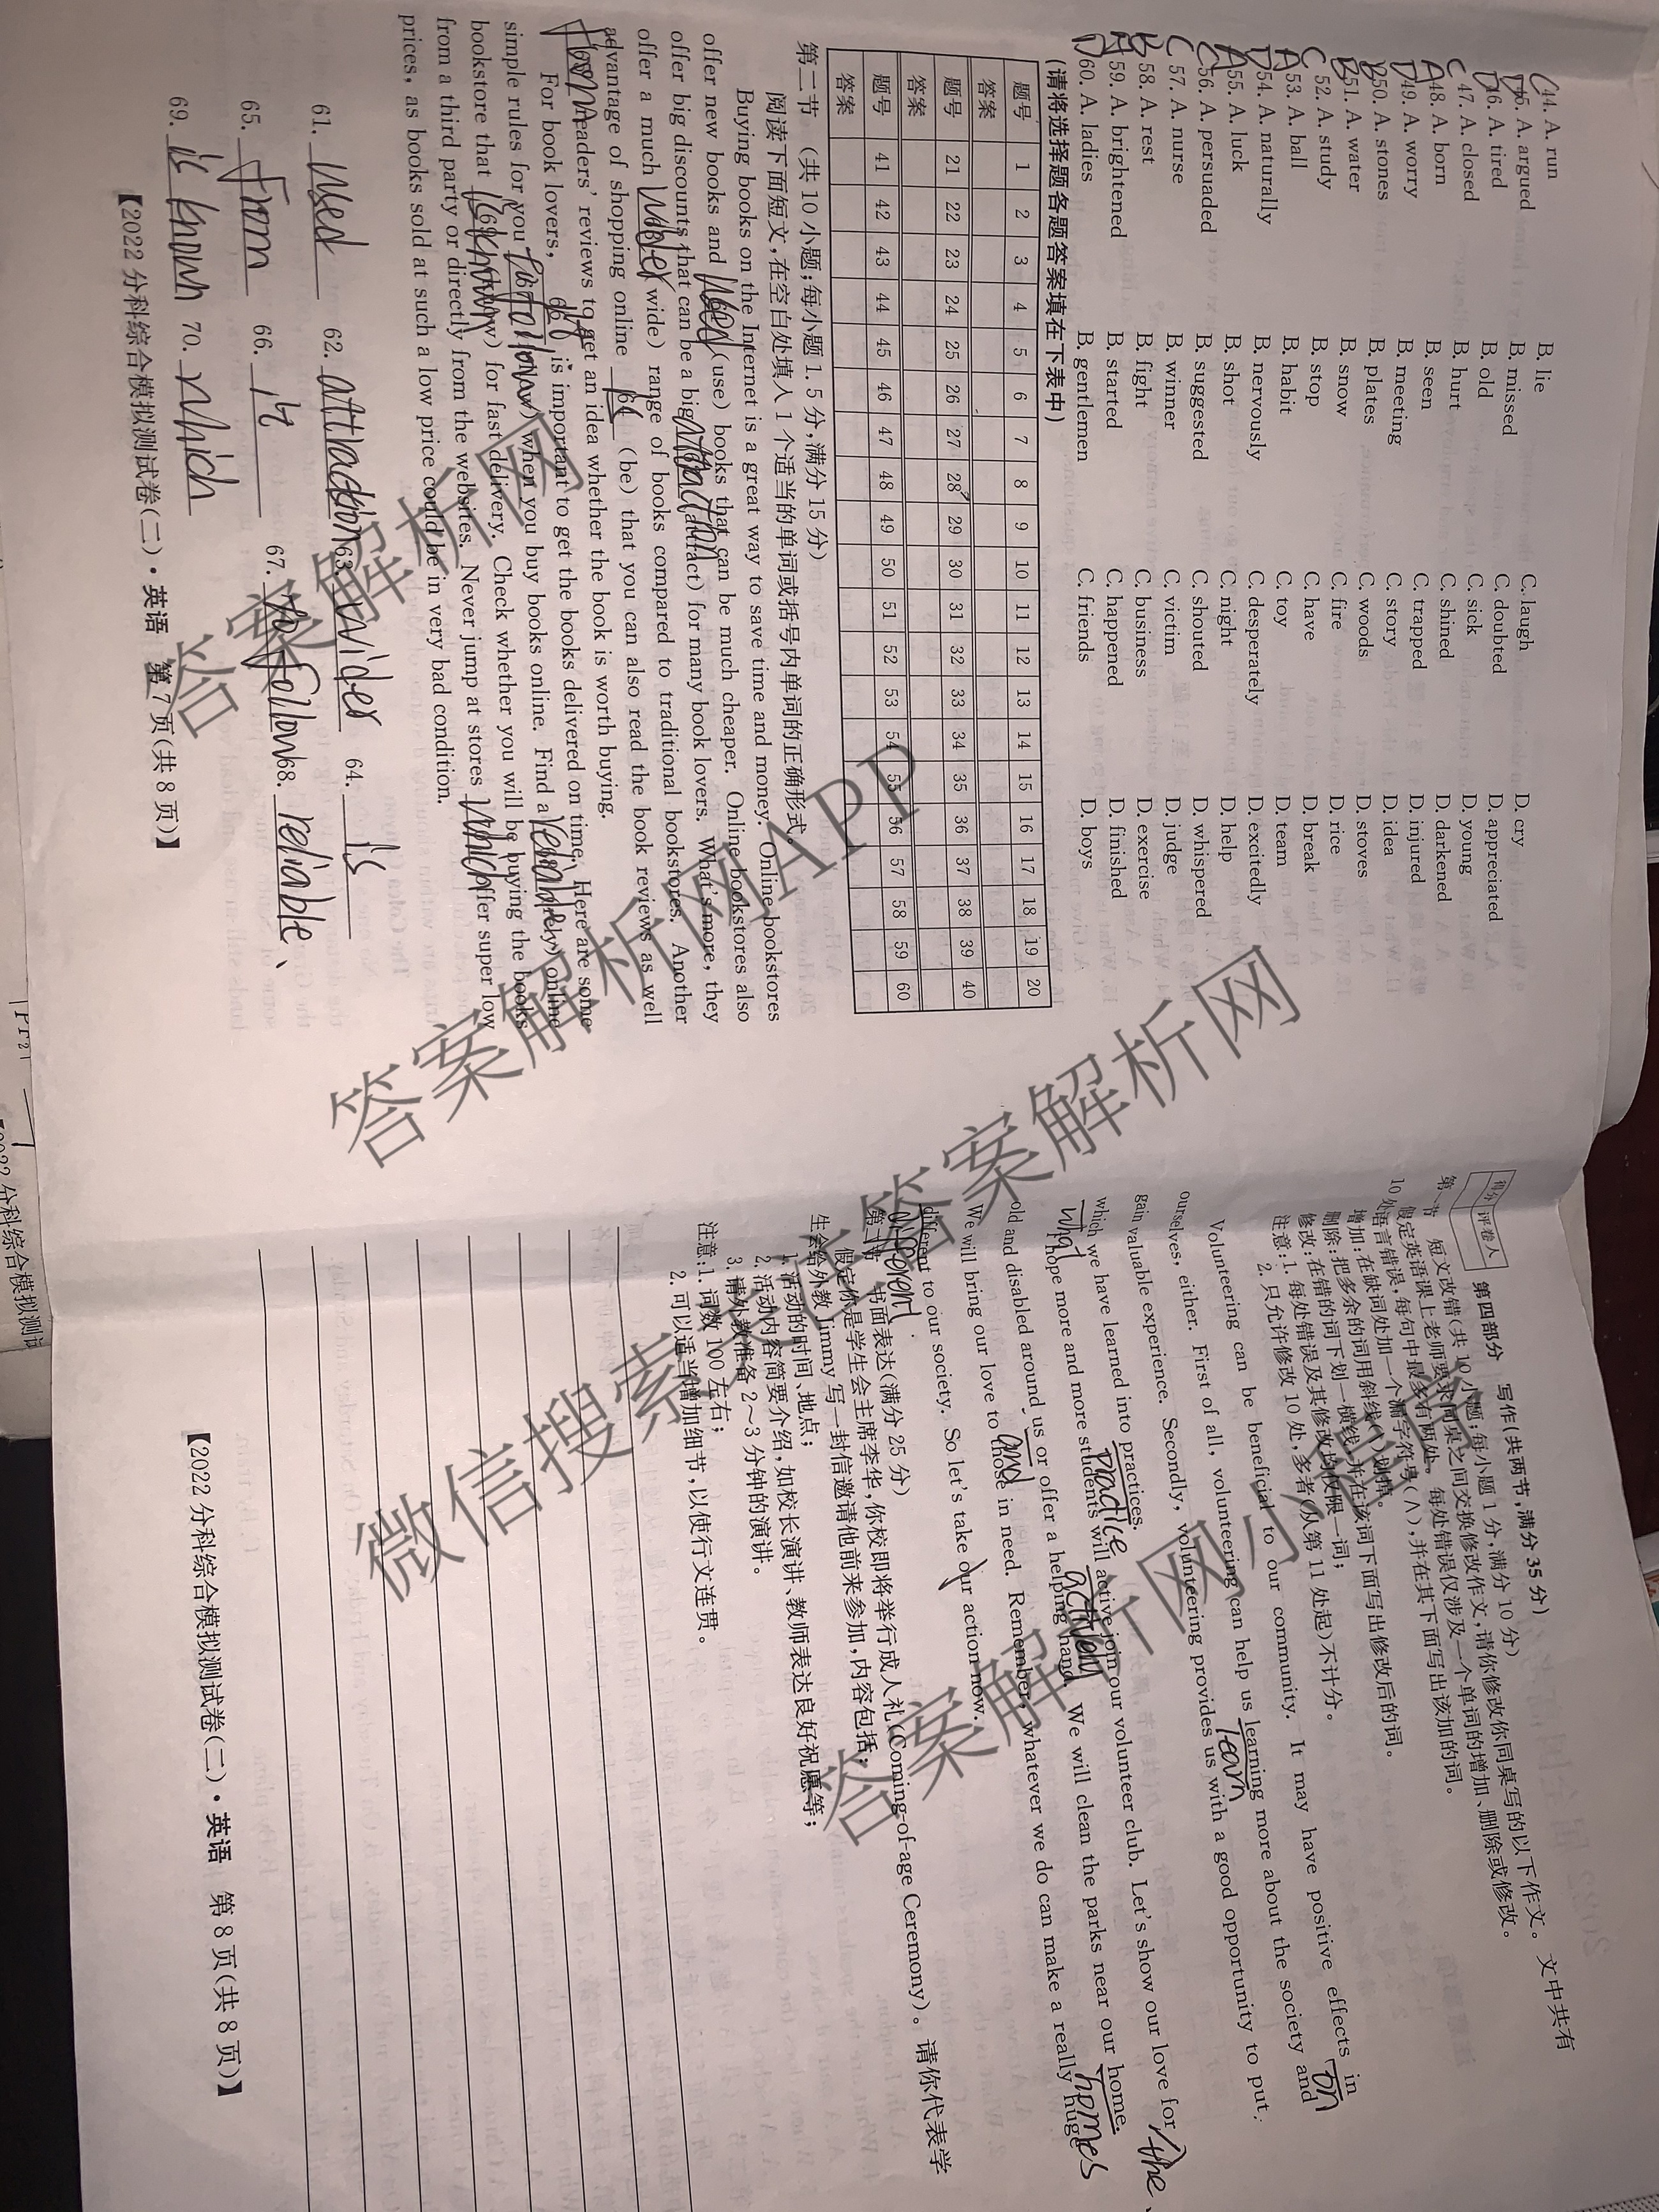 C 44. A. run B. lie C. laugh D. cry
D 45. A. argued B. missed C. doubted D. appreciated
D 46. A. tired B. old C. sick D. young
C 47. A. closed B. hurt C. shined D. darkened
A 48. A. born B. seen C. trapped D. injured
D 49. A. worry B. meeting C. story D. idea
B 50. A. stones B. plates C. woods D. stoves
B 51. A. water B. snow C. fire D. rice
C 52. A. study B. stop C. have D. break
A 53. A. ball B. habit C. toy D. team
D 54. A. naturally B. nervously C. desperately D. excitedly
A 55. A. luck B. shot C. night D. help
C 56. A. persuaded B. suggested C. shouted D. whispered
C 57. A. nurse B. winner C. victim D. judge
B 58. A. rest B. fight C. business D. exercise
A 59. A. brightened B. started C. happened D. finished
D 60. A. ladies B. gentlemen C. friends D. boys
(请将选择题各题答案填在下表中)
题号 1 2 3 4 5 6 7 8 9 10 11 12 13 14 15 16 17 18 19 20
答案
题号 21 22 23 24 25 26 27 28 29 30 31 32 33 34 35 36 37 38 39 40
答案
题号 41 42 43 44 45 46 47 48 49 50 51 52 53 54 55 56 57 58 59 60
答案
第二节 (共 10 小题;每小题 1.5 分,满分 15 分)
阅读下面短文,在空白处填入 1 个适当的单词或括号内单词的正确形式。
Buying books on the Internet is a great way to save time and money. Online bookstores
offer new books and used (use) books that can be much cheaper. Online bookstores also
offer big discounts that can be a big attraction (attract) for many book lovers. What's more, they
offer a much wider (wide) range of books compared to traditional bookstores. Another
advantage of shopping online 64 is (be) that you can also read the book reviews as well
from readers' reviews to get an idea whether the book is worth buying.
For book lovers, 66 it is important to get the books delivered on time. Here are some
simple rules for you to follow when you buy books online. Find a reliable (rely) online
bookstore that is known (know) for fast delivery. Check whether you will be buying the books
from a third party or directly from the websites. Never jump at stores which offer super low
prices, as books sold at such a low price could be in very bad condition.
61. used 62. attraction 63. wider 64. is
65. From 66. it 67. to follow 68. reliable
69. is known 70. which
【2022 分科综合模拟测试卷(二)·英语 第 7 页(共 8 页)】
得分 评卷人
第四部分 写作(共两节,满分 35 分)
第一节 短文改错(共 10 小题;每小题 1 分,满分 10 分)
假定英语课上老师要求同桌之间交换修改作文,请你修改你同桌写的以下作文。文中共有
10 处语言错误,每句中最多有两处。每处错误仅涉及一个单词的增加、删除或修改。
增加:在缺词处加一个漏字符号(∧),并在其下面写出该加的词。
删除:把多余的词用斜线(\)划掉。
修改:在错的词下划一横线,并在该词下面写出修改后的词。
注意:1. 每处错误及其修改均仅限一词;
2. 只允许修改 10 处,多者(从第 11 处起)不计分。
Volunteering can be beneficial to our community. It may have positive effects in
on
ourselves, either. First of all, volunteering can help us learning more about the society and
learn
gain valuable experience. Secondly, volunteering provides us with a good opportunity to put
which we have learned into practices.
what practice
I hope more and more students will active join our volunteer club. Let's show our love for the
actively
old and disabled around us or offer a helping hand. We will clean the parks near our home.
and homes
We will bring our love to those in need. Remember, whatever we do can make a really huge
different to our society. So let's take our action now.
different
第二节 书面表达(满分 25 分)
假定你是学生会主席李华,你校即将举行成人礼(Coming-of-age Ceremony)。请你代表学
生会给外教 Jimmy 写一封信邀请他前来参加,内容包括:
1. 活动的时间、地点;
2. 活动内容简要介绍,如校长演讲、教师表达良好祝愿等;
3. 请外教准备 2~3 分钟的演讲。
注意:1. 词数 100 左右;
2. 可以适当增加细节,以使行文连贯。
【2022 分科综合模拟测试卷(二)·英语 第 8 页(共 8 页)】
答案解析网
答案解析网APP
答案解析网
微信搜索《答案解析网》小程序
答案解析网